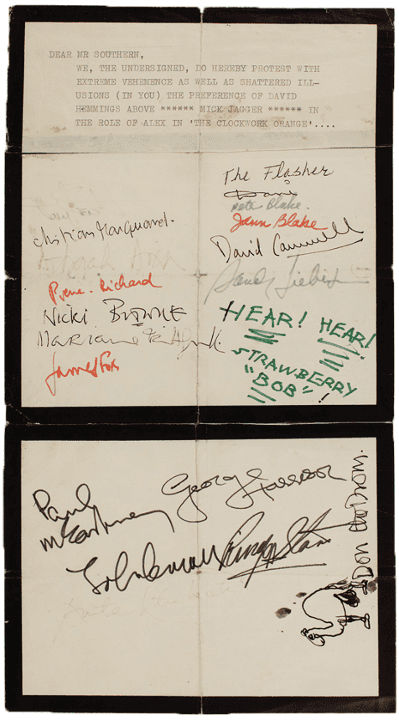 DEAR MR SOUTHERN,
WE, THE UNDERSIGNED, DO HEREBY PROTEST WITH
EXTREME VEHEMENCE AS WELL AS SHATTERED ILL-
USIONS (IN YOU) THE PREFERENCE OF DAVID
HEMMINGS ABOVE ****** MICK JAGGER ****** IN
THE ROLE OF ALEX IN 'THE CLOCKWORK ORANGE'....
The Flasher
Peter Blake.
Jann Blake
Christian Marquand.
David Cammell
Sandy Lieberson
Richard
Nicki BROWNE
Marianne Faithfull
James Fox
HEAR! HEAR!
STRAWBERRY
"BOB"!
Paul
McCartney
George Harrison
John Lennon Ringo Starr
Don